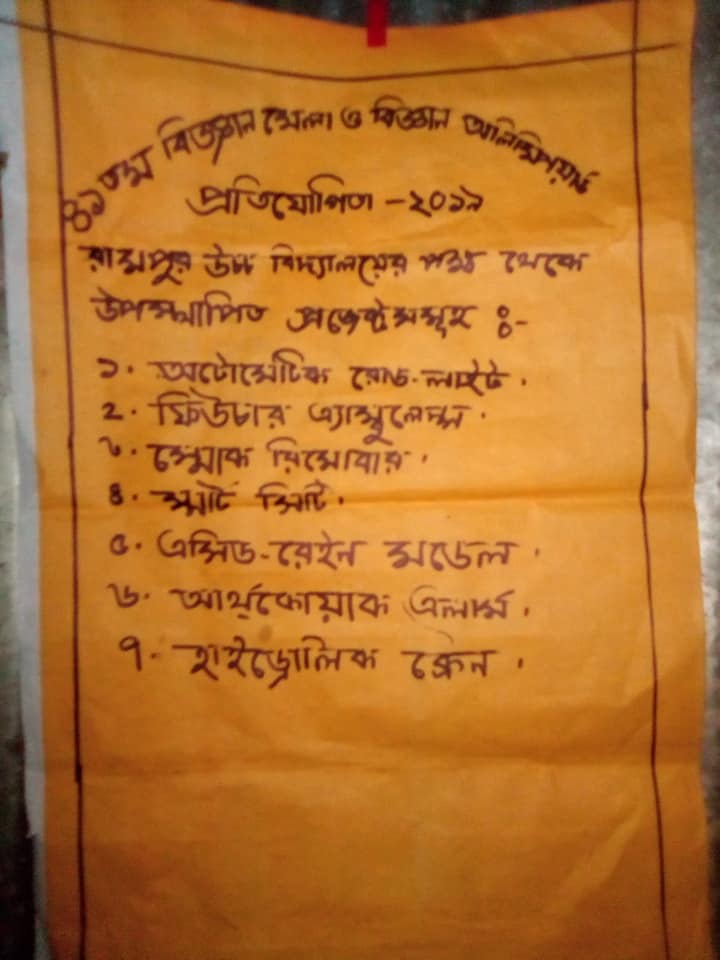 ৪১তম বিজ্ঞান মেলা ও বিজ্ঞান অলিম্পিয়াড
প্রতিযোগিতা - ২০১৯
রামপুর উচ্চ বিদ্যালয়ের পক্ষ থেকে
উপস্থাপিত প্রজেক্টসমূহ ঃ-
১. অটোমেটিক রোড-লাইট.
২. ফিউচার এ্যাম্বুলেন্স.
৩. স্মোক রিমোবার.
৪. স্মার্ট সিটি.
৫. এসিড-রেইন মডেল.
৬. আর্থকোয়াক এলার্ম.
৭. হাইড্রোলিক ক্রেন.